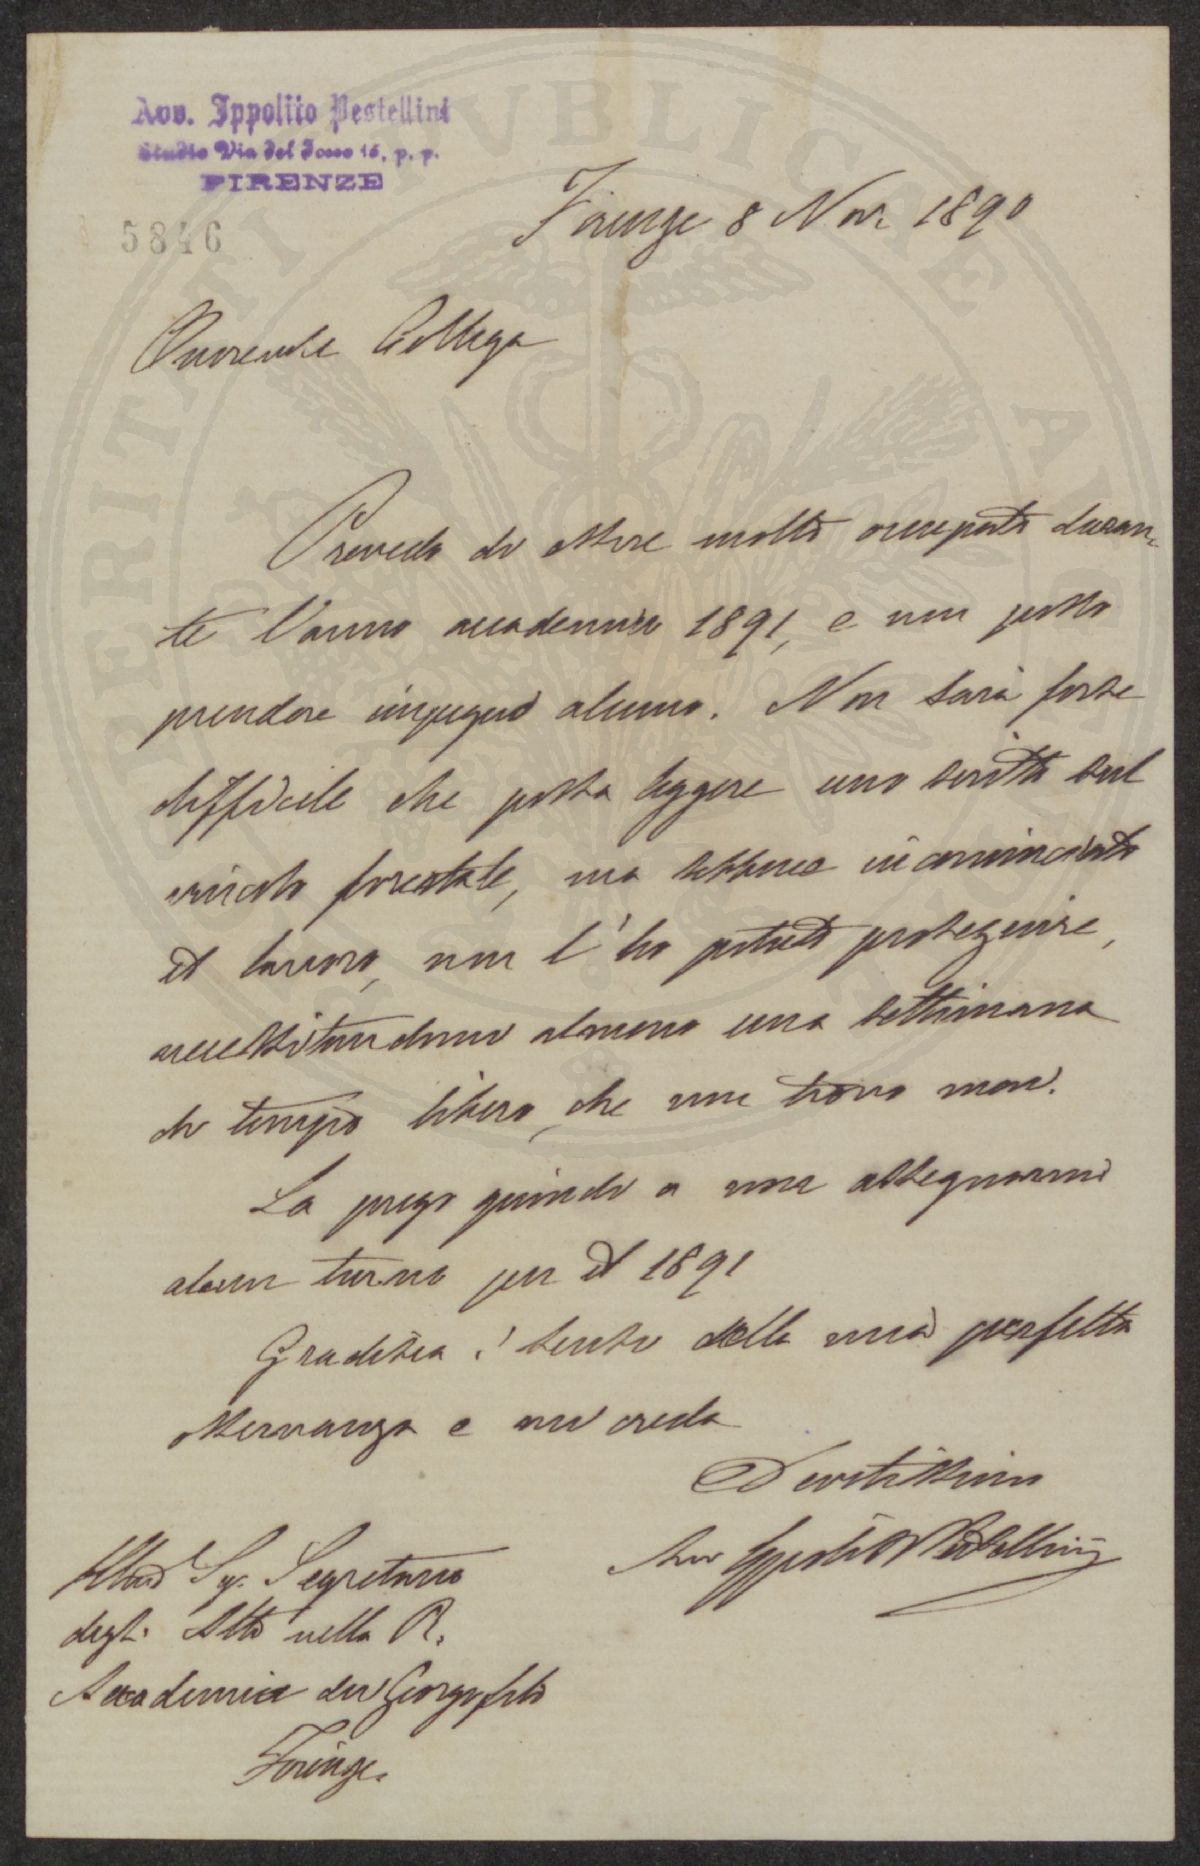 Avv. Ippolito Pestellini
Studio Via del Cocomero 16, p. p.
FIRENZE
5846
Firenze 8 Nov. 1890
Onorevole Collega
Prevedo di essere molto occupato duran-
te l'anno accademico 1891, e non posso
prendere impegno alcuno. Non sarà forse
difficile che possa leggere uno scritto sul
vincolo forestale, ma sebbene incominciato
il lavoro, non l'ho potuto proseguire,
necessitandomi almeno una settimana
di tempo libero, che non trovo mai.
La prego quindi a non assegnarmi
alcun turno per il 1891
Gradisca i sensi della mia perfetta
osservanza e mi creda
Devotissimo
Avv Ippolito Pestellini
Sig. Segretario
degli Atti nella R.
Accademia dei Georgofili
Firenze.